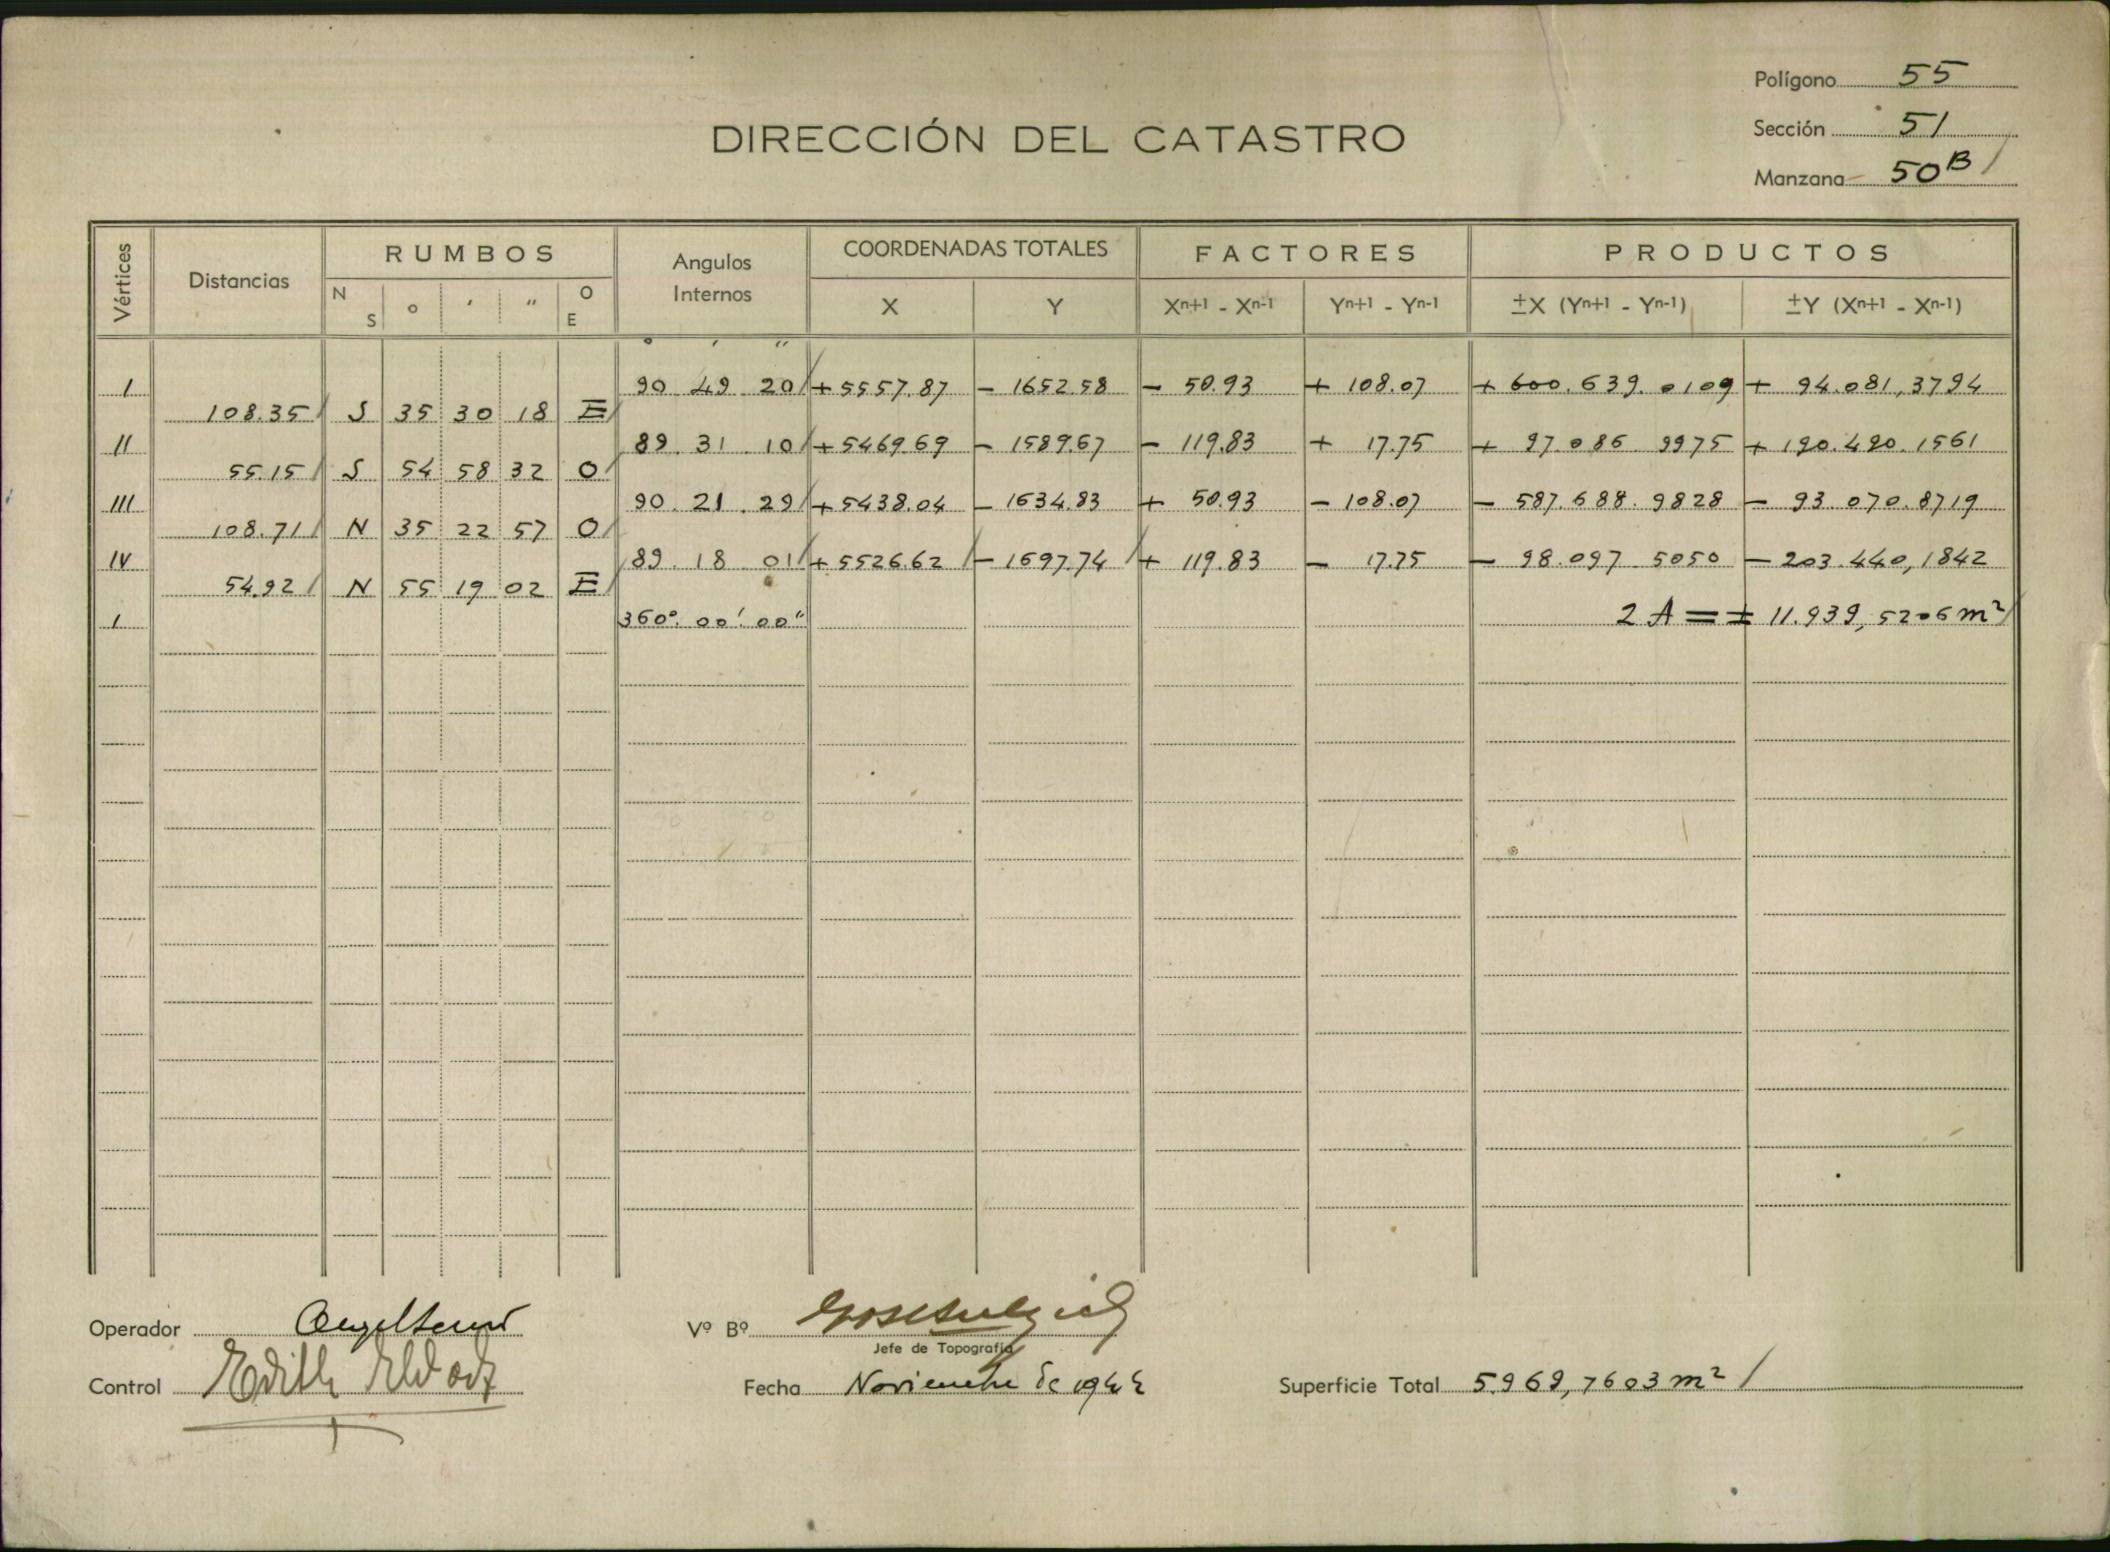 Polígono 55
DIRECCIÓN DEL CATASTRO
Sección 51
Manzana 50B
Vértices Distancias RUMBOS Angulos Internos COORDENADAS TOTALES FACTORES PRODUCTOS
N S ° ' " O E X Y Xn+1 - Xn-1 Yn+1 - Yn-1 ±X (Yn+1 - Yn-1) ±Y (Xn+1 - Xn-1)
° ' "
I 90 49 20 +5557.87 - 1652.58 - 50.93 + 108.07 + 600.639.0109 + 94.081,3794
108.35 S 35 30 18 E
II 89 31 10 +5469.69 - 1589.67 - 119.83 + 17.75 + 97.086.9975 + 190.490.1561
55.15 S 54 58 32 O
III 90 21 29 +5438.04 - 1634.83 + 50.93 - 108.07 - 587.688.9828 - 93.070.8719
108.71 N 35 22 57 O
IV 89 18 01 +5526.62 - 1697.74 + 119.83 - 17.75 - 98.097.5050 - 203.440,1842
54.92 N 55 19 02 E
I 360° 00' 00" 2 A = ± 11.939,5206 m²
Operador
Vº Bº
Jefe de Topografía
Control Edith
Fecha Noviembre de 1944
Superficie Total 5.969,7603 m²